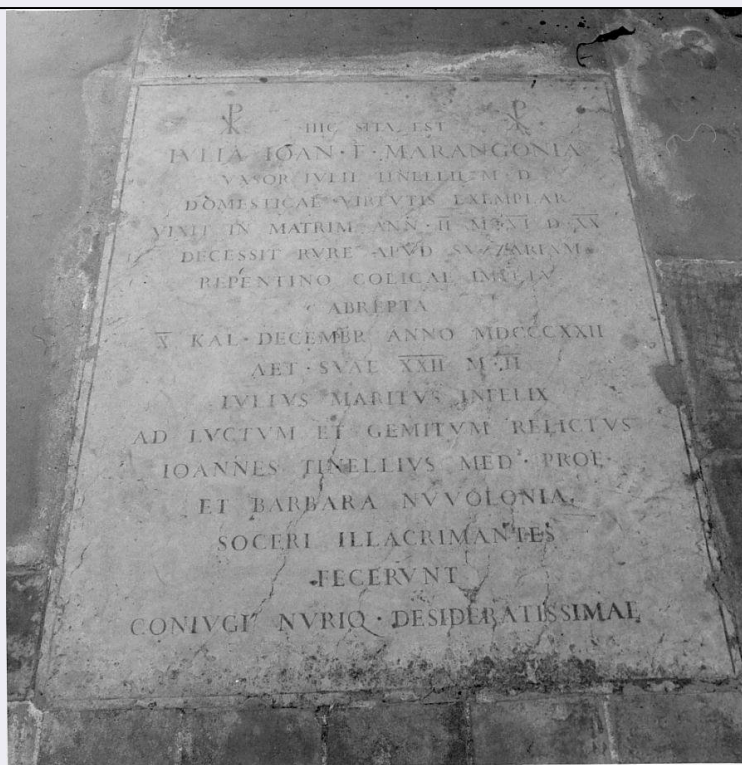 ☧ HIC SITA EST ☧
IVLIA IOAN · F · MARANGONIA
VXSOR IVLII TINELLII M D
DOMESTICAE VIRTVTIS EXEMPLAR
VIXIT IN MATRIM ANN · II M · XI D · XX
DECESSIT RVRE APVD SVZARIAM
REPENTINO COLICAE
ABREPTA
X KAL · DECEMBR ANNO MDCCCXXII
AET · SVAE XXII M · II
IVLIVS MARITVS INFELIX
AD LVCTVM ET GEMITVM RELICTVS
IOANNES TINELLIVS MED · PROF ·
ET BARBARA NVVOLONIA
SOCERI ILLACRIMANTES
FECERVNT
CONIVGI NVRIQ · DESIDERATISSIMAE